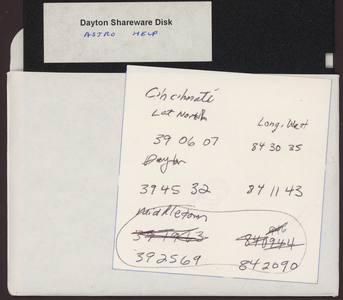 Dayton Shareware Disk
ASTRO HELP
Cincinnati
Lat North Long. West
39 06 07 84 30 35
Dayton
39 45 32 84 11 43
Middletown
392569 842090